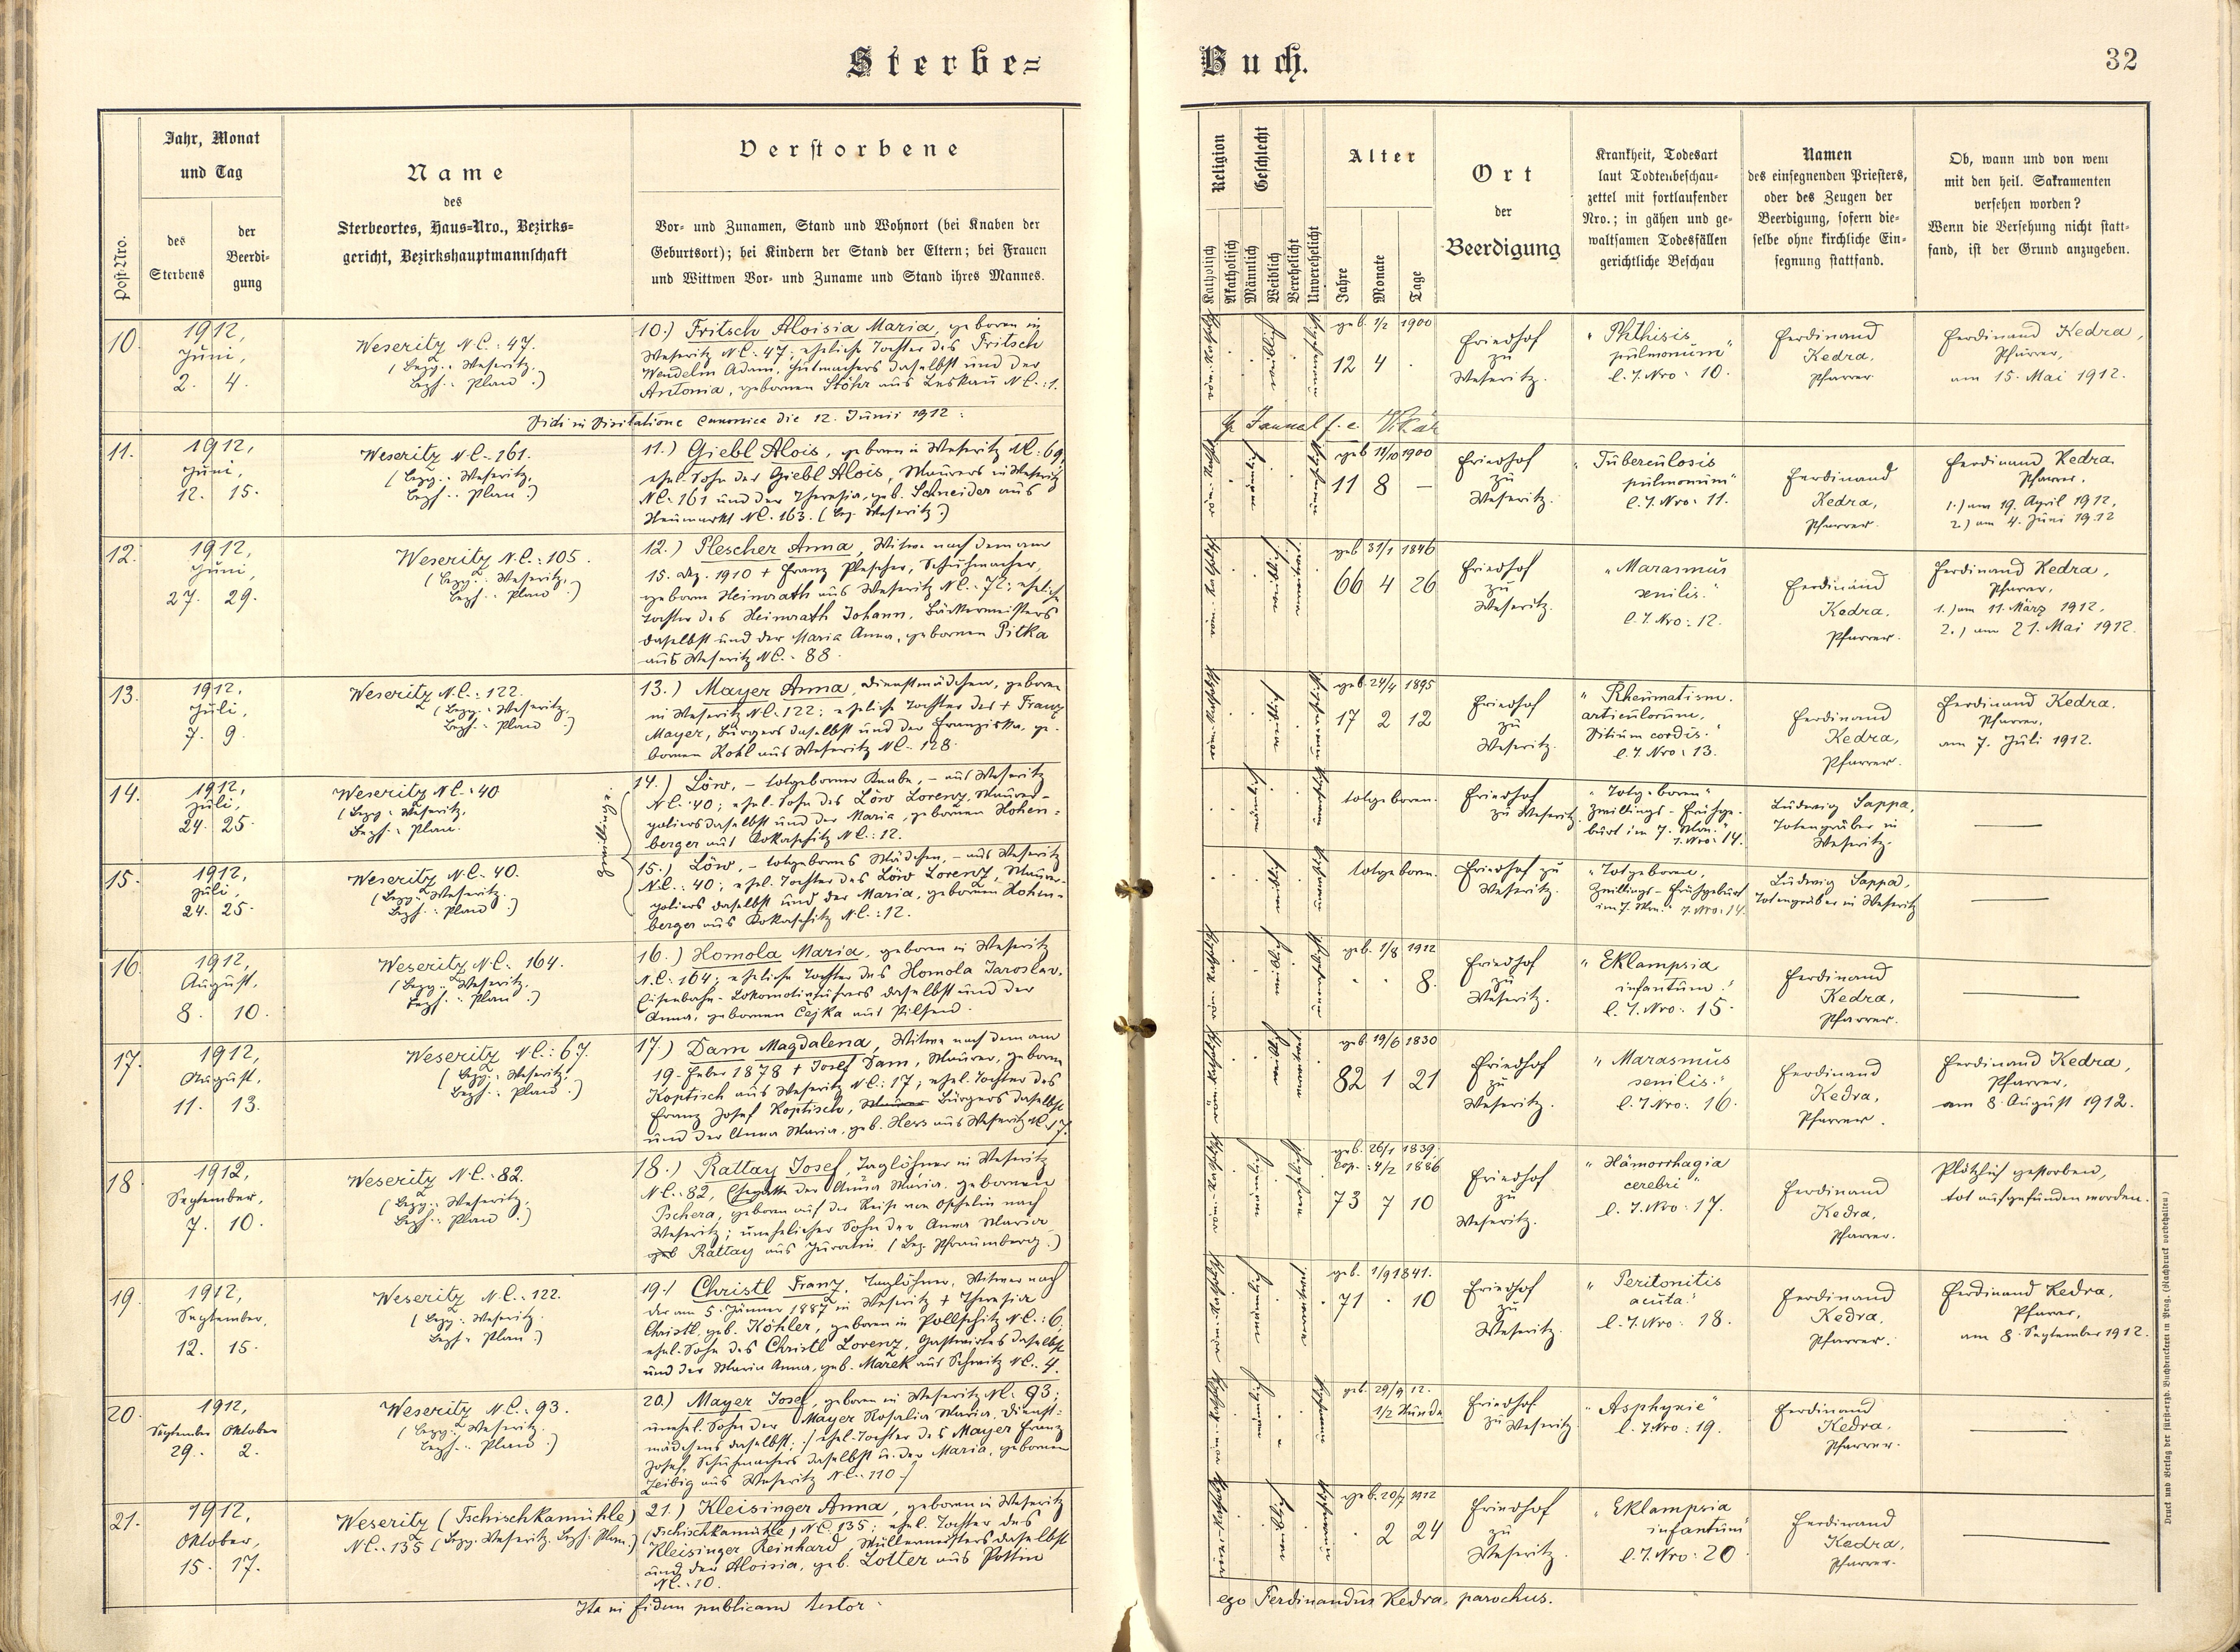 Sterbe=
Buch.
32
Post-Nro.
Jahr, Monat
und Tag
des
Sterbens
der
Beerdi-
gung
Name
des
Sterbeortes, Haus=Nro., Bezirks=
gericht, Bezirkshauptmannschaft
Verstorbene
Vor- und Zunamen, Stand und Wohnort (bei Knaben der
Geburtsort); bei Kindern der Stand der Eltern; bei Frauen
und Wittwen Vor- und Zuname und Stand ihres Mannes.
Religion
Katholisch
Akatholisch
Geschlecht
Männlich
Weiblich
Verehelicht
Unverehelicht
Alter
Jahre
Monate
Tage
Ort
der
Beerdigung
Krankheit, Todesart
laut Todtenbeschau-
zettel mit fortlaufender
Nro.; in gähen und ge-
waltsamen Todesfällen
gerichtliche Beschau
Namen
des einsegnenden Priesters,
oder des Zeugen der
Beerdigung, sofern die-
selbe ohne kirchliche Ein-
segnung stattfand.
Ob, wann und von wem
mit den heil. Sakramenten
versehen worden?
Wenn die Versehung nicht statt-
fand, ist der Grund anzugeben.
10.
1912,
Juni,
2. 4.
Weseritz N.C.: 47.
(Bezg.: Weseritz,
Bezh.: Plan.)
10.) Fritsch Aloisia Maria, geboren in
Weseritz N.C.: 47; eheliche Tochter des Fritsch
Wendelin Adam, Hutmachers daselbst und der
Antonia, gebornen Stöhr aus Leskau N.C.: 1.
geb. 1/2 1900
12 4 .
Friedhof
zu
Weseritz.
"Phthisis
pulmonum"
l. T. Nro: 10.
Ferdinand
Kedra,
Pfarrer.
Ferdinand Kedra,
Pfarrer,
am 15. Mai 1912.
Vidi in Visitatione canonica die 12. Junii 1912:
f. e. Vikär
11.
1912,
Juni,
12. 15.
Weseritz N.C.: 161.
(Bezg.: Weseritz,
Bezh.: Plan.)
11.) Giebl Alois, geboren in Weseritz N.C.: 69,
ehel. Sohn des Giebl Alois, Maurers in Weseritz
N.C.: 161 und der Theresia, geb. Schneider aus
Neumarkt N.C. 163. (Bez. Weseritz.)
geb. 11/10 1900
11 8 –
Friedhof
zu
Weseritz.
"Tuberculosis
pulmonum"
l. T. Nro: 11.
Ferdinand
Kedra,
Pfarrer.
Ferdinand Kedra,
Pfarrer,
1.) am 19. April 1912,
2.) am 4. Juni 1912
12.
1912,
Juni,
27. 29.
Weseritz N.C.: 105.
(Bezg.: Weseritz,
Bezh.: Plan.)
12.) Plescher Anna, Witwe nach dem am
15. Dez. 1910 + Franz Plescher, Schuhmacher,
geborne Heimrath aus Weseritz N.C.: 72; eheliche
Tochter des Heimrath Johann, Bäckermeisters
daselbst und der Maria Anna, gebornen Pitka
aus Weseritz N.C.: 88.
geb. 31/1 1846
66 4 26
Friedhof
zu
Weseritz.
"Marasmus
senilis."
l. T. Nro: 12.
Ferdinand
Kedra,
Pfarrer.
Ferdinand Kedra,
Pfarrer,
1.) am 11. März 1912,
2.) am 21. Mai 1912.
13.
1912,
Juli,
7. 9.
Weseritz N.C.: 122.
(Bezg.: Weseritz,
Bezh.: Plan.)
13.) Mayer Anna, Dienstmädchen, geboren
in Weseritz N.C.: 122; eheliche Tochter des + Franz
Mayer, Bürgers daselbst und der Franziska, ge-
bornen Kohl aus Weseritz N.C.: 128.
geb. 24/4 1895
17 2 12
Friedhof
zu
Weseritz.
"Rheumatism.
articulorum,
Vitium cordis."
l. T. Nro: 13.
Ferdinand
Kedra,
Pfarrer.
Ferdinand Kedra,
Pfarrer,
am 7. Juli 1912.
14.
1912,
Juli,
24. 25.
Weseritz N.C.: 40
(Bezg.: Weseritz,
Bezh.: Plan.
Zwillinge
14.) Löw, – totgeborner Knabe, – aus Weseritz
N.C.: 40; ehel. Sohn des Löw Lorenz, Maurer-
poliers daselbst und der Maria, gebornen Hohen-
berger aus Kokaschitz N.C.: 12.
totgeboren.
Friedhof
zu Weseritz.
"Totgeboren"
Zwillings-Frühge-
burt im 7. Mon."
T. Nro: 14.
Ludwig Sappa,
Totengräber in
Weseritz.
15.
1912,
Juli,
24. 25.
Weseritz N.C.: 40.
(Bezg.: Weseritz,
Bezh.: Plan.)
15.) Löw, – totgebornes Mädchen, – aus Weseritz
N.C.: 40; ehel. Tochter des Löw Lorenz, Maurer-
poliers daselbst und der Maria, gebornen Hohen-
berger aus Kokaschitz N.C.: 12.
totgeboren.
Friedhof zu
Weseritz.
"Totgeboren,
Zwillings-Frühgeburt
im 7. Mon." T. Nro: 14.
Ludwig Sappa,
Totengräber in Weseritz
16.
1912,
August,
8. 10.
Weseritz N.C.: 164.
(Bezg.: Weseritz,
Bezh.: Plan.)
16.) Homola Maria, geboren in Weseritz
N.C.: 164; eheliche Tochter des Homola Jaroslav,
Eisenbahn-Lokomotivführers daselbst und der
Anna, gebornen Cejka aus Pilsen.
geb. 1/8 1912
. . 8.
Friedhof
zu
Weseritz.
"Eklampsia
infantum."
l. T. Nro: 15.
Ferdinand
Kedra,
Pfarrer.
17.
1912,
August,
11. 13.
Weseritz N.C.: 67.
(Bezg.: Weseritz,
Bezh.: Plan.)
17.) Dam Magdalena, Witwe nach dem am
19. Feber 1878 + Josef Dam, Maurer, geborne
Koptisch aus Weseritz N.C.: 17; ehel. Tochter des
Franz Josef Koptisch, Maurer Bürgers daselbst
und der Anna Maria, geb. Hess aus Weseritz N.C. 17.
geb. 19/6 1830
82 1 21
Friedhof
zu
Weseritz.
"Marasmus
senilis."
l. T. Nro: 16.
Ferdinand
Kedra,
Pfarrer.
Ferdinand Kedra,
Pfarrer,
am 8. August 1912.
18
1912,
September,
7. 10.
Weseritz N.C.: 82.
(Bezg.: Weseritz,
Bezh.: Plan.)
18.) Rattay Josef, Taglöhner in Weseritz
N.C.: 82, Ehegatte der Anna Maria, gebornen
Pschera, geboren auf der Reise von Oschelin nach
Weseritz; unehelicher Sohn der Anna Maria
geb Rattay aus Juratin (Bez. Pfraumberg.)
geb. 26/1 1839.
cop.: 4/2 1886
73 7 10
Friedhof
zu
Weseritz.
"Hämorrhagia
cerebri"
l. T. Nro: 17.
Ferdinand
Kedra,
Pfarrer.
Plötzlich gestorben,
tot aufgefunden worden.
19.
1912,
September,
12. 15.
Weseritz N.C.: 122.
(Bezg.: Weseritz.
Bezh.: Plan.)
19.) Christl Franz, Taglöhner, Witwer nach
der am 5. Jänner 1887 in Weseritz + Theresia
Christl, geb. Köhler, geboren in Pollschitz N.C.: 6;
ehel. Sohn des Christl Lorenz, Gastwirtes daselbst
und der Maria Anna, geb. Marek aus Schwitz N.C.: 4.
geb. 1/9 1841.
71 . 10
Friedhof
zu
Weseritz.
"Peritonitis
acuta."
l. T. Nro: 18.
Ferdinand
Kedra,
Pfarrer.
Ferdinand Kedra,
Pfarrer,
am 8. September 1912.
20.
1912,
September Oktober
29. 2.
Weseritz N.C.: 93.
(Bezg.: Weseritz.
Bezh.: Plan.)
20.) Mayer Josef, geboren in Weseritz N.C.: 93;
unehel. Sohn der Mayer Rosalia Maria, Dienst-
mädchens daselbst; / ehel. Tochter des Mayer Franz
Josef, Schuhmachers daselbst u. der Maria, gebornen
Zeibig aus Weseritz N.C.: 110./
geb. 29/9 12.
1/2 Stunde
Friedhof
zu Weseritz
"Asphyxie"
l. T. Nro: 19.
Ferdinand
Kedra,
Pfarrer.
21.
1912,
Oktober,
15. 17.
Weseritz (Tschischkamühle)
N.C.: 135 (Bezg. Weseritz, Bezh. Plan.)
21.) Kleisinger Anna, geboren in Weseritz
(Tschischkamühle) N.C. 135; ehel. Tochter des
Kleisinger Reinhard, Müllermeisters daselbst
und der Aloisia, geb. Lotter aus Pottin
N.C.: 10.
geb. 20/7 1912
. 2 24
Friedhof
zu
Weseritz.
"Eklampsia
infantum"
l. T. Nro: 20
Ferdinand
Kedra,
Pfarrer.
Ita in fidem publicam testor
ego Ferdinandus Kedra, parochus.
Druck und Verlag der fürst-erzb. Buchdruckerei in Prag. (Nachdruck vorbehalten.)